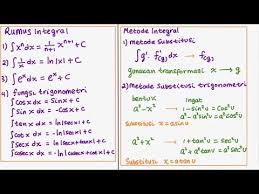 Rumus Integral
1) ∫xⁿdx = 1/(n+1) xⁿ⁺¹ + C
2) ∫1/x dx = ln|x| + C
3) ∫eˣ = eˣ + C
4) fungsi trigonometri
∫cosx dx = sinx + C
∫sinx dx = -cosx + C
∫tanx dx = -ln|cosx| + C
∫cotx dx = ln|sinx| + C
∫secx dx = ln|secx+tanx| + C
Metode Integral
1) metode Substitusi
∫g'. f(g) dx → f(g)
gunakan transformasi x → g
2) Metode Substitusi trigonometri
bentuk
ingat
a²-x²
cos²u = 1-sin²u
a²-a²sin²u = a²cos²u
Substitusi x = a sin u
a²+x²
1+tan²u = sec²u
a²+a²tan²u = a²sec²u
Substitusi x = a tan u